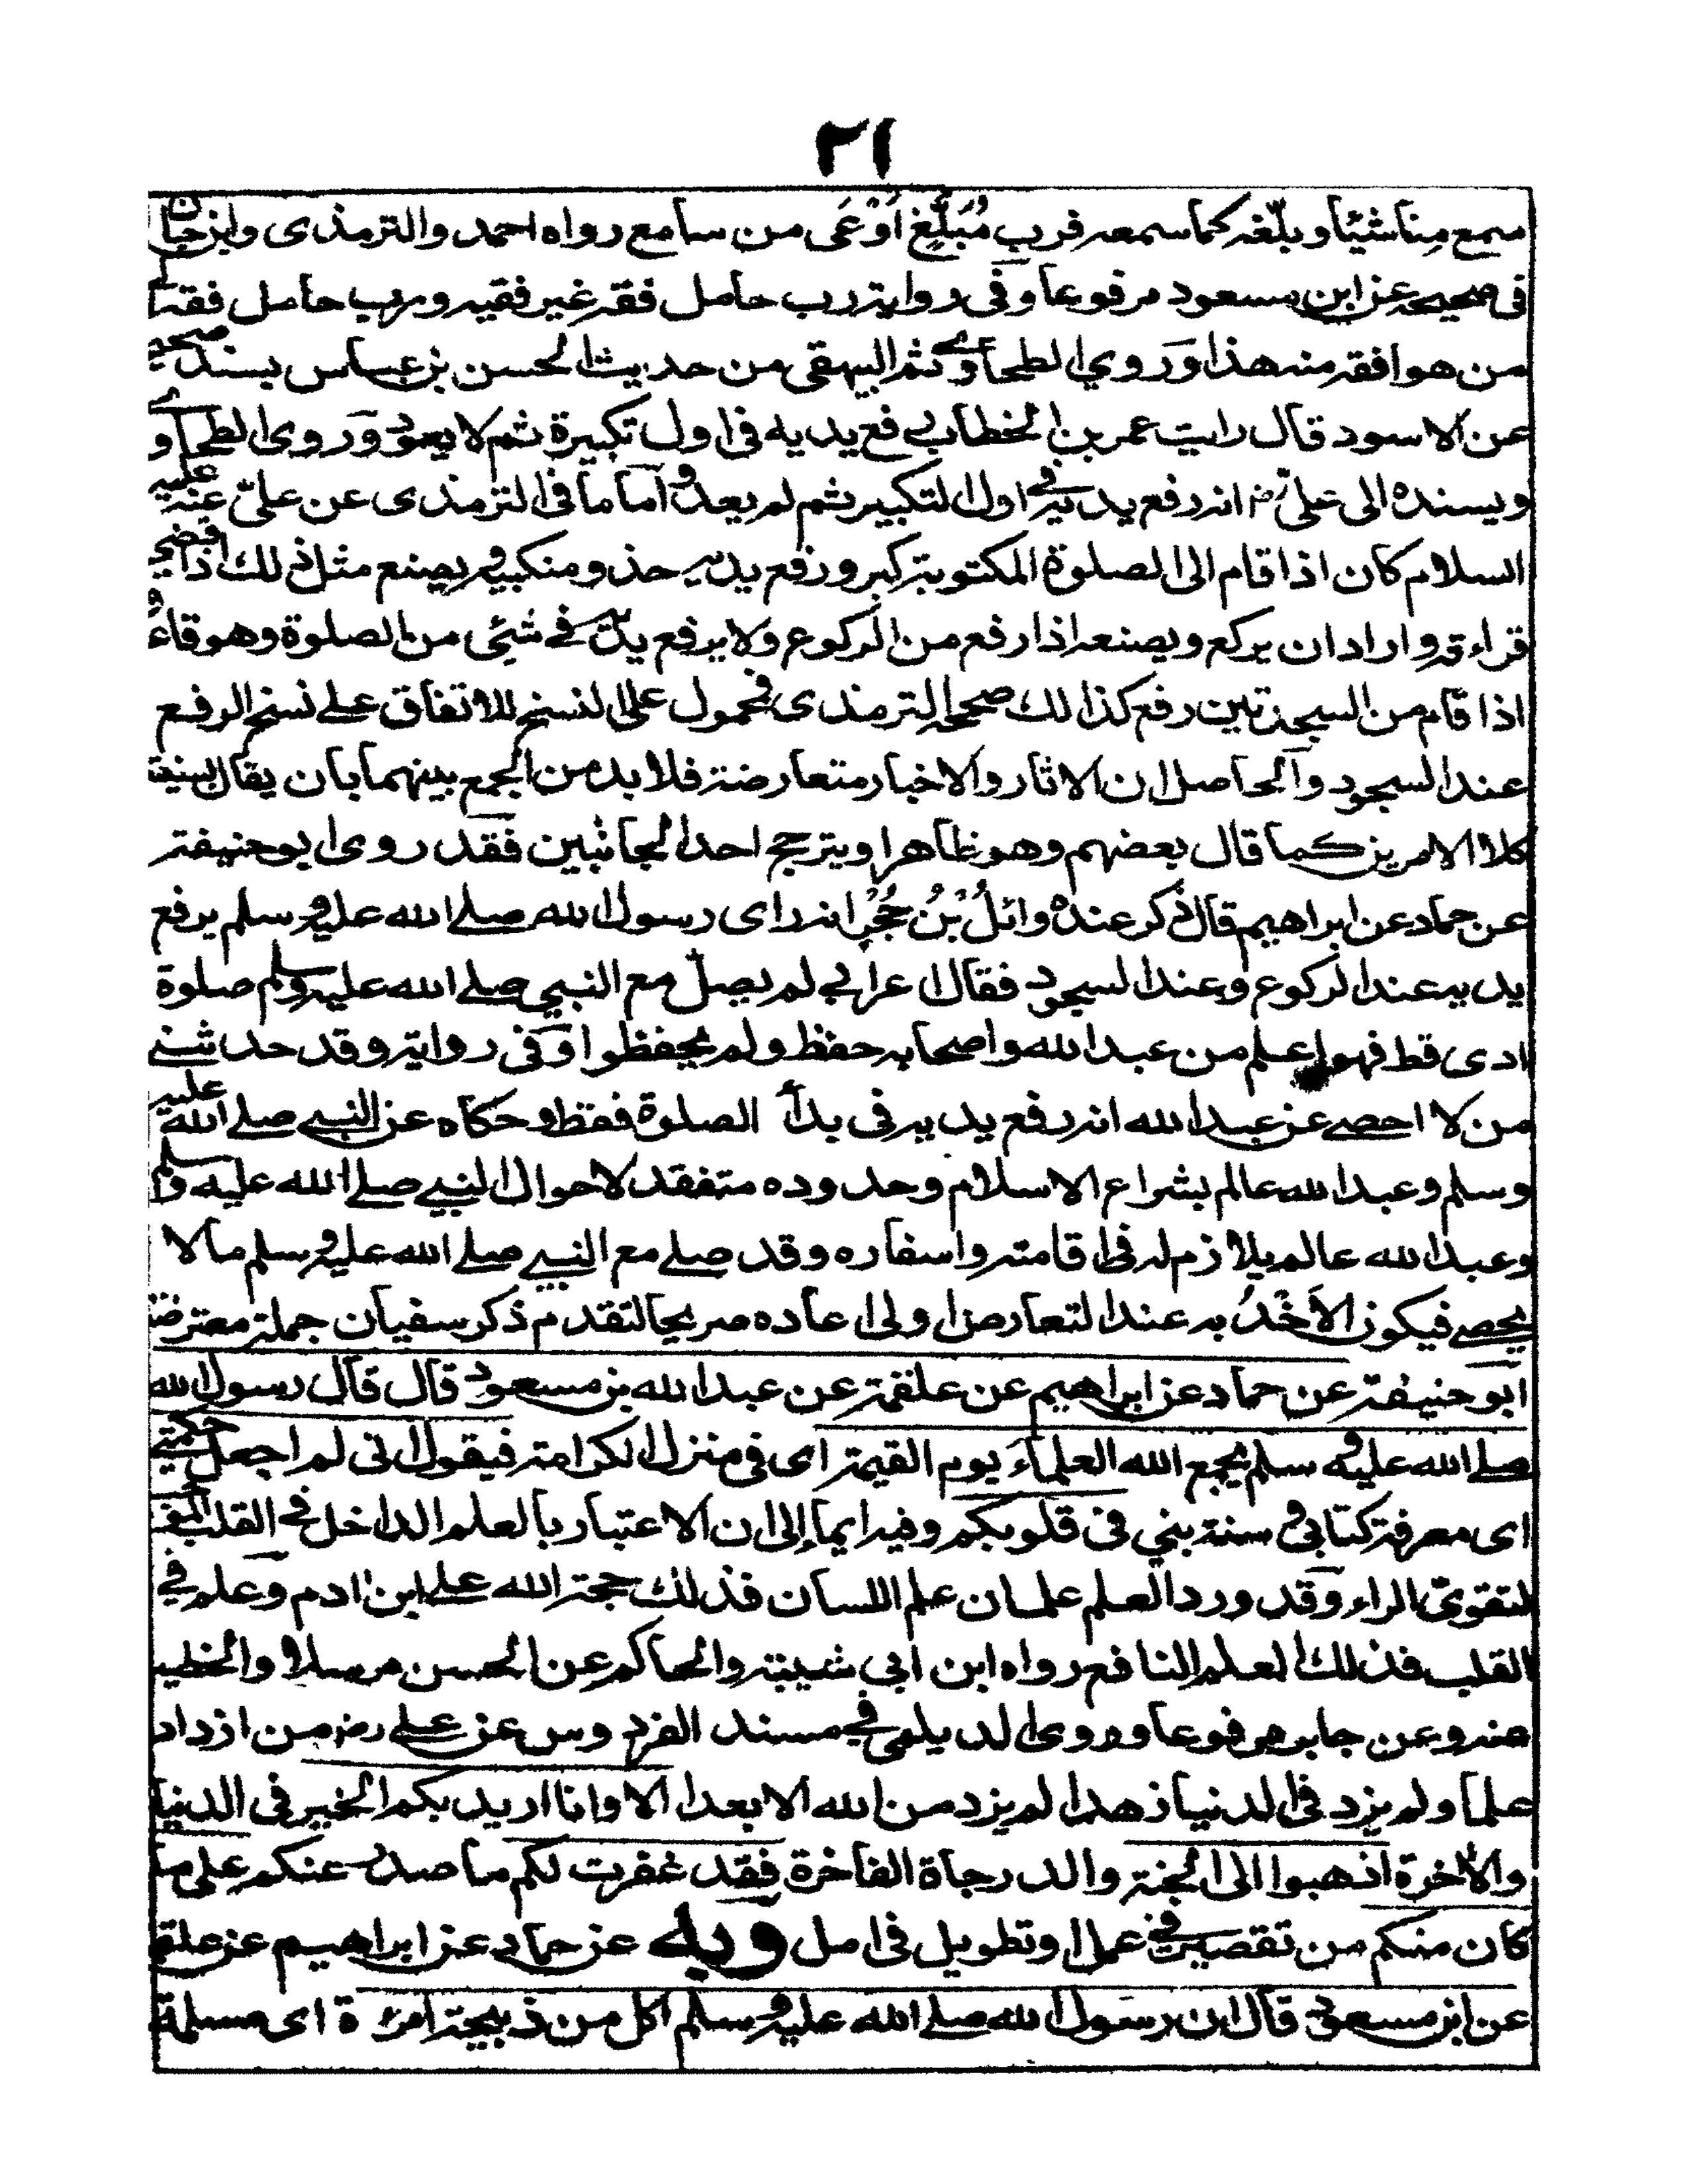 ٢١
سمع منا شيئا وبلّغه كما سمعه فرب مُبَلَّغٍ اَوْعَى من سامع رواه احمد والترمذى وابن حبان
فى صحيحه عن ابن مسعود مرفوعا وفى رواية رب حامل فقه غير فقيه ورب حامل فقه الى
من هو افقه منه هذا وروي الطحاوى ثم البيهقى من حديث الحسن بن عباس بسند صحيح
عن الاسود قال رايت عمر بن الخطاب يرفع يديه فى اول تكبيرة ثم لا يعود وروى الطحاوى
وبسنده الى على رض انه رفع يديه فى اول التكبير ثم لم يعد واما ما فى الترمذى عن علىّ عنه عليه
السلام كان اذا قام الى الصلوة المكتوبة كبر ورفع يديه حذو منكبيه ويصنع مثل ذلك اذا قضى
قراءته واراد ان يركع ويصنعه اذا رفع من الركوع ولا يرفع يديه فى شئى من الصلوة وهو قاعد و
اذا قام من السجدتين رفع كذالك صححه الترمذى فمحمول على النسخ للاتفاق على نسخ الرفع
عند السجود والحاصل ان الاثار والاخبار متعارضة فلا بد من الجمع بينهما بان يقال بسنية
كلا الامرين كما قال بعضهم وهو ظاهر او يترجح احد الجانبين فقد روى ابو حنيفة
عن حماد عن ابراهيم قال ذكر عنده وائلُ بْنُ حُجْرٍ انه راى رسول الله صلى الله عليه وسلم يرفع
يديه عند الركوع وعند السجود فقال اعرابى لم يصلّ مع النبي صلى الله عليه وسلم صلوة
ادى قط فهو اعلم من عبد الله واصحابه حفظ ولم يحفظوا وفى رواية وقد حدثنى
من لا احصى عن عبد الله انه رفع يديه فى بدأ الصلوة فقط وحكاه عن النبى صلى الله عليه
وسلم وعبد الله عالم بشرائع الاسلام وحدوده متفقد لاحوال النبى صلى الله عليه وسلم
وعبد الله عالم يلازم له فى اقامته واسفاره وقد صلى مع النبى صلى الله عليه وسلم ما لا
يحصى فيكون الاَخْذُ به عند التعارض اولى اعاده صريحا لتقدم ذكر سفيان جملة معترضة
ابو حنيفة عن حماد عن ابراهيم عن علقمة عن عبد الله بن مسعود قال قال رسول الله
صلى الله عليه وسلم يجمع الله العلماء يوم القيمة اى فى منزل الكرامة فيقول انى لم اجعل حكمتى
اى معرفة كتابى وسنة نبيي فى قلوبكم وفيه ايماء الى ان الاعتبار بالعلم الداخل فى القلب
لتقوى الراء وقد ورد العلم علمان علم اللسان فذلك حجة الله على ابن ادم وعلم فى
القلب فذلك العلم النافع رواه ابن ابى شيبة والحاكم عن الحسن مرسلا والخطيب
عنه وعن جابر مرفوعا وروى الديلمى فى مسند الفردوس عن على رض من ازداد
علما ولم يزد فى الدنيا زهدا لم يزد من الله الا بعدا الا وانا اريد بكم الخير فى الدنيا
والاخرة اذهبوا الى الجنة والدرجاة الفاخرة فقد غفرت لكم ما صدر عنكم على ما
كان منكم من تقصير فى عمل او تطويل فى امل وبه عن حماد عن ابراهيم عن علقمة
عن ابن مسعود قال ان رسول الله صلى الله عليه وسلم اكل من ذبيحة امرأة اى مسلمة